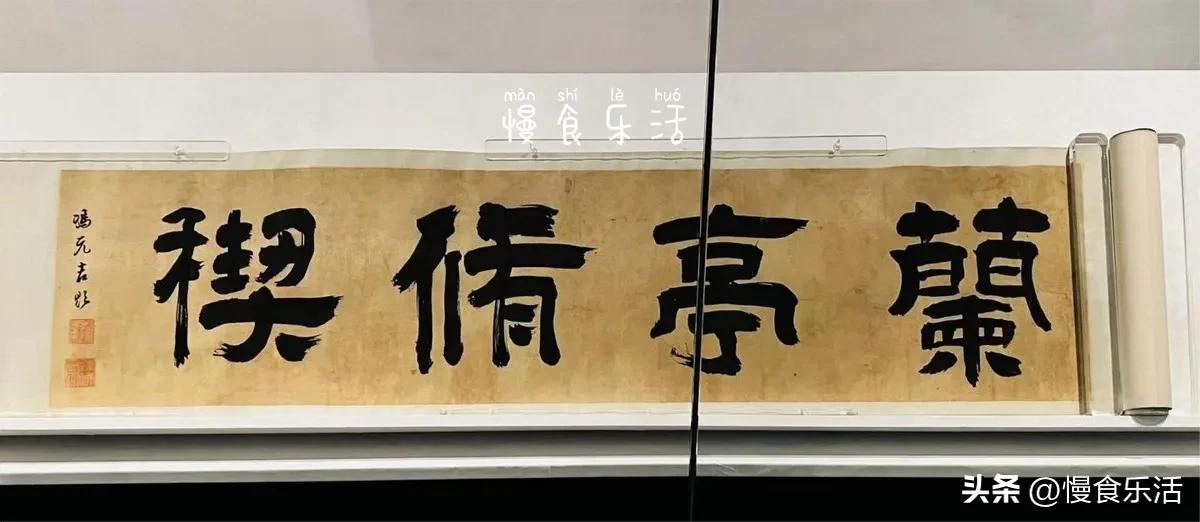 màn shí lè huó
慢食乐活
蘭亭脩稧
馮元吉題
头条 @慢食乐活